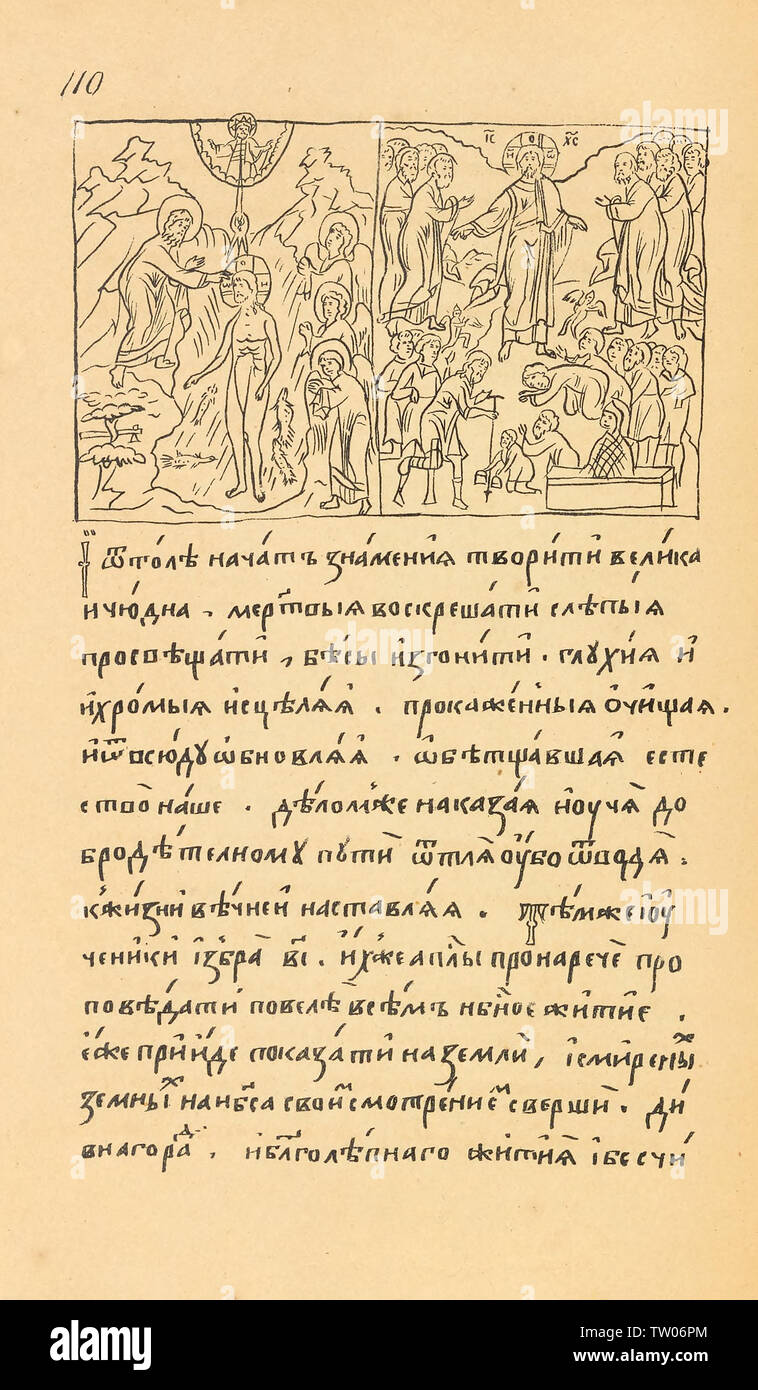 110
ІС ХС
И ѿто́лѣ нача́тъ зна́мениѧ твори́ти вели́ка
и чю́дна, ме́ртвыѧ воскреша́ти слѣпы́ѧ
просвѣща́ти, бѣ́сы изгони́ти. глухи́ѧ и
и хро́мыѧ исцѣлѧ́ѧ. прокаже́нныѧ ѡчища́ѧ.
и ѿвсю́ду ѡбновлѧ́ѧ. ѡбѣтша́вшаѧ есте
ство̀ на́ше. дѣ́лом же наказа́ѧ и уча̀ до
бродѣ́телному путѝ ѿ тлѧ̀ оубо ѿводѧ̀.
к жи́зни вѣ́чней наставлѧ́ѧ. тѣ́мже і оу
ченикѝ ізбра̀ ві. и́хже апⷭлы пронаречѐ про
повѣ́дати повелѣ̀ всѣ́мъ нбⷭное житиѐ.
е́же прии́де показа́ти на землѝ, і смире́ныⷯ
земны́ⷯ на нбⷭса свои́ⷨ смотре́ниеⷨ свершѝ. ди́
вна гораⷣ. и бл҃голѣ́пнаго жити́ѧ і бесчи́
alamy
Image ID: TW06PM
www.alamy.com